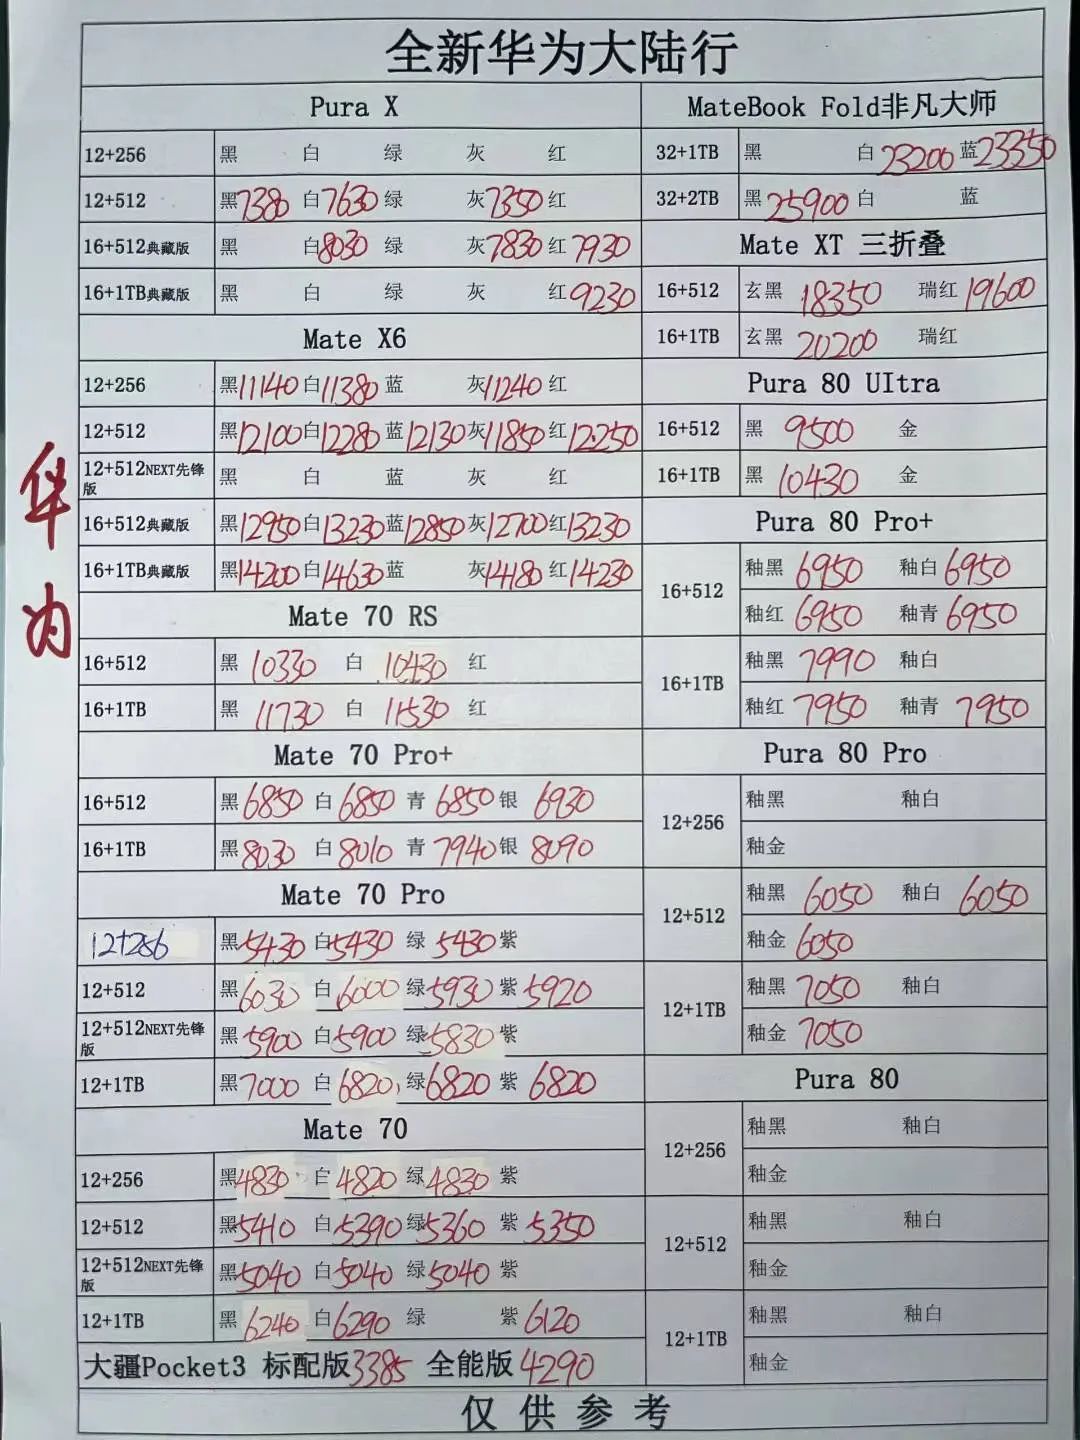 全新华为大陆行
Pura X
12+256 黑 白 绿 灰 红
12+512 黑7380 白7630 绿 灰7350 红
16+512典藏版 黑 白8030 绿 灰7830 红7930
16+1TB典藏版 黑 白 绿 灰 红9230
Mate X6
12+256 黑11140 白11380 蓝 灰11240 红
12+512 黑12100 白12280 蓝12130 灰11850 红12250
12+512NEXT先锋版 黑 白 蓝 灰 红
16+512典藏版 黑12950 白13230 蓝12850 灰12700 红13230
16+1TB典藏版 黑14200 白14630 蓝 灰14180 红14230
Mate 70 RS
16+512 黑 10330 白 10430 红
16+1TB 黑 11730 白 11530 红
Mate 70 Pro+
16+512 黑6850 白6850 青6850 银6930
16+1TB 黑8030 白8010 青7940 银8090
Mate 70 Pro
12+256 黑5430 白5430 绿5430 紫
12+512 黑6030 白6000 绿5930 紫5920
12+512NEXT先锋版 黑5900 白5900 绿5830 紫
12+1TB 黑7000 白6820 绿6820 紫6820
Mate 70
12+256 黑4830 白4820 绿4830 紫
12+512 黑5410 白5390 绿5360 紫5350
12+512NEXT先锋版 黑5040 白5040 绿5040 紫
12+1TB 黑6240 白6290 绿 紫6120
大疆Pocket3 标配版3385 全能版4290
MateBook Fold非凡大师
32+1TB 黑 白23200 蓝23350
32+2TB 黑25900 白 蓝
Mate XT 三折叠
16+512 玄黑 18350 瑞红19600
16+1TB 玄黑 20200 瑞红
Pura 80 UItra
16+512 黑 9500 金
16+1TB 黑 10430 金
Pura 80 Pro+
16+512 釉黑 6950 釉白6950
釉红 6950 釉青6950
16+1TB 釉黑 7990 釉白
釉红 7950 釉青 7950
Pura 80 Pro
12+256 釉黑 釉白
釉金
12+512 釉黑 6050 釉白 6050
釉金 6050
12+1TB 釉黑 7050 釉白
釉金 7050
Pura 80
12+256 釉黑 釉白
釉金
12+512 釉黑 釉白
釉金
12+1TB 釉黑 釉白
釉金
仅供参考
华为